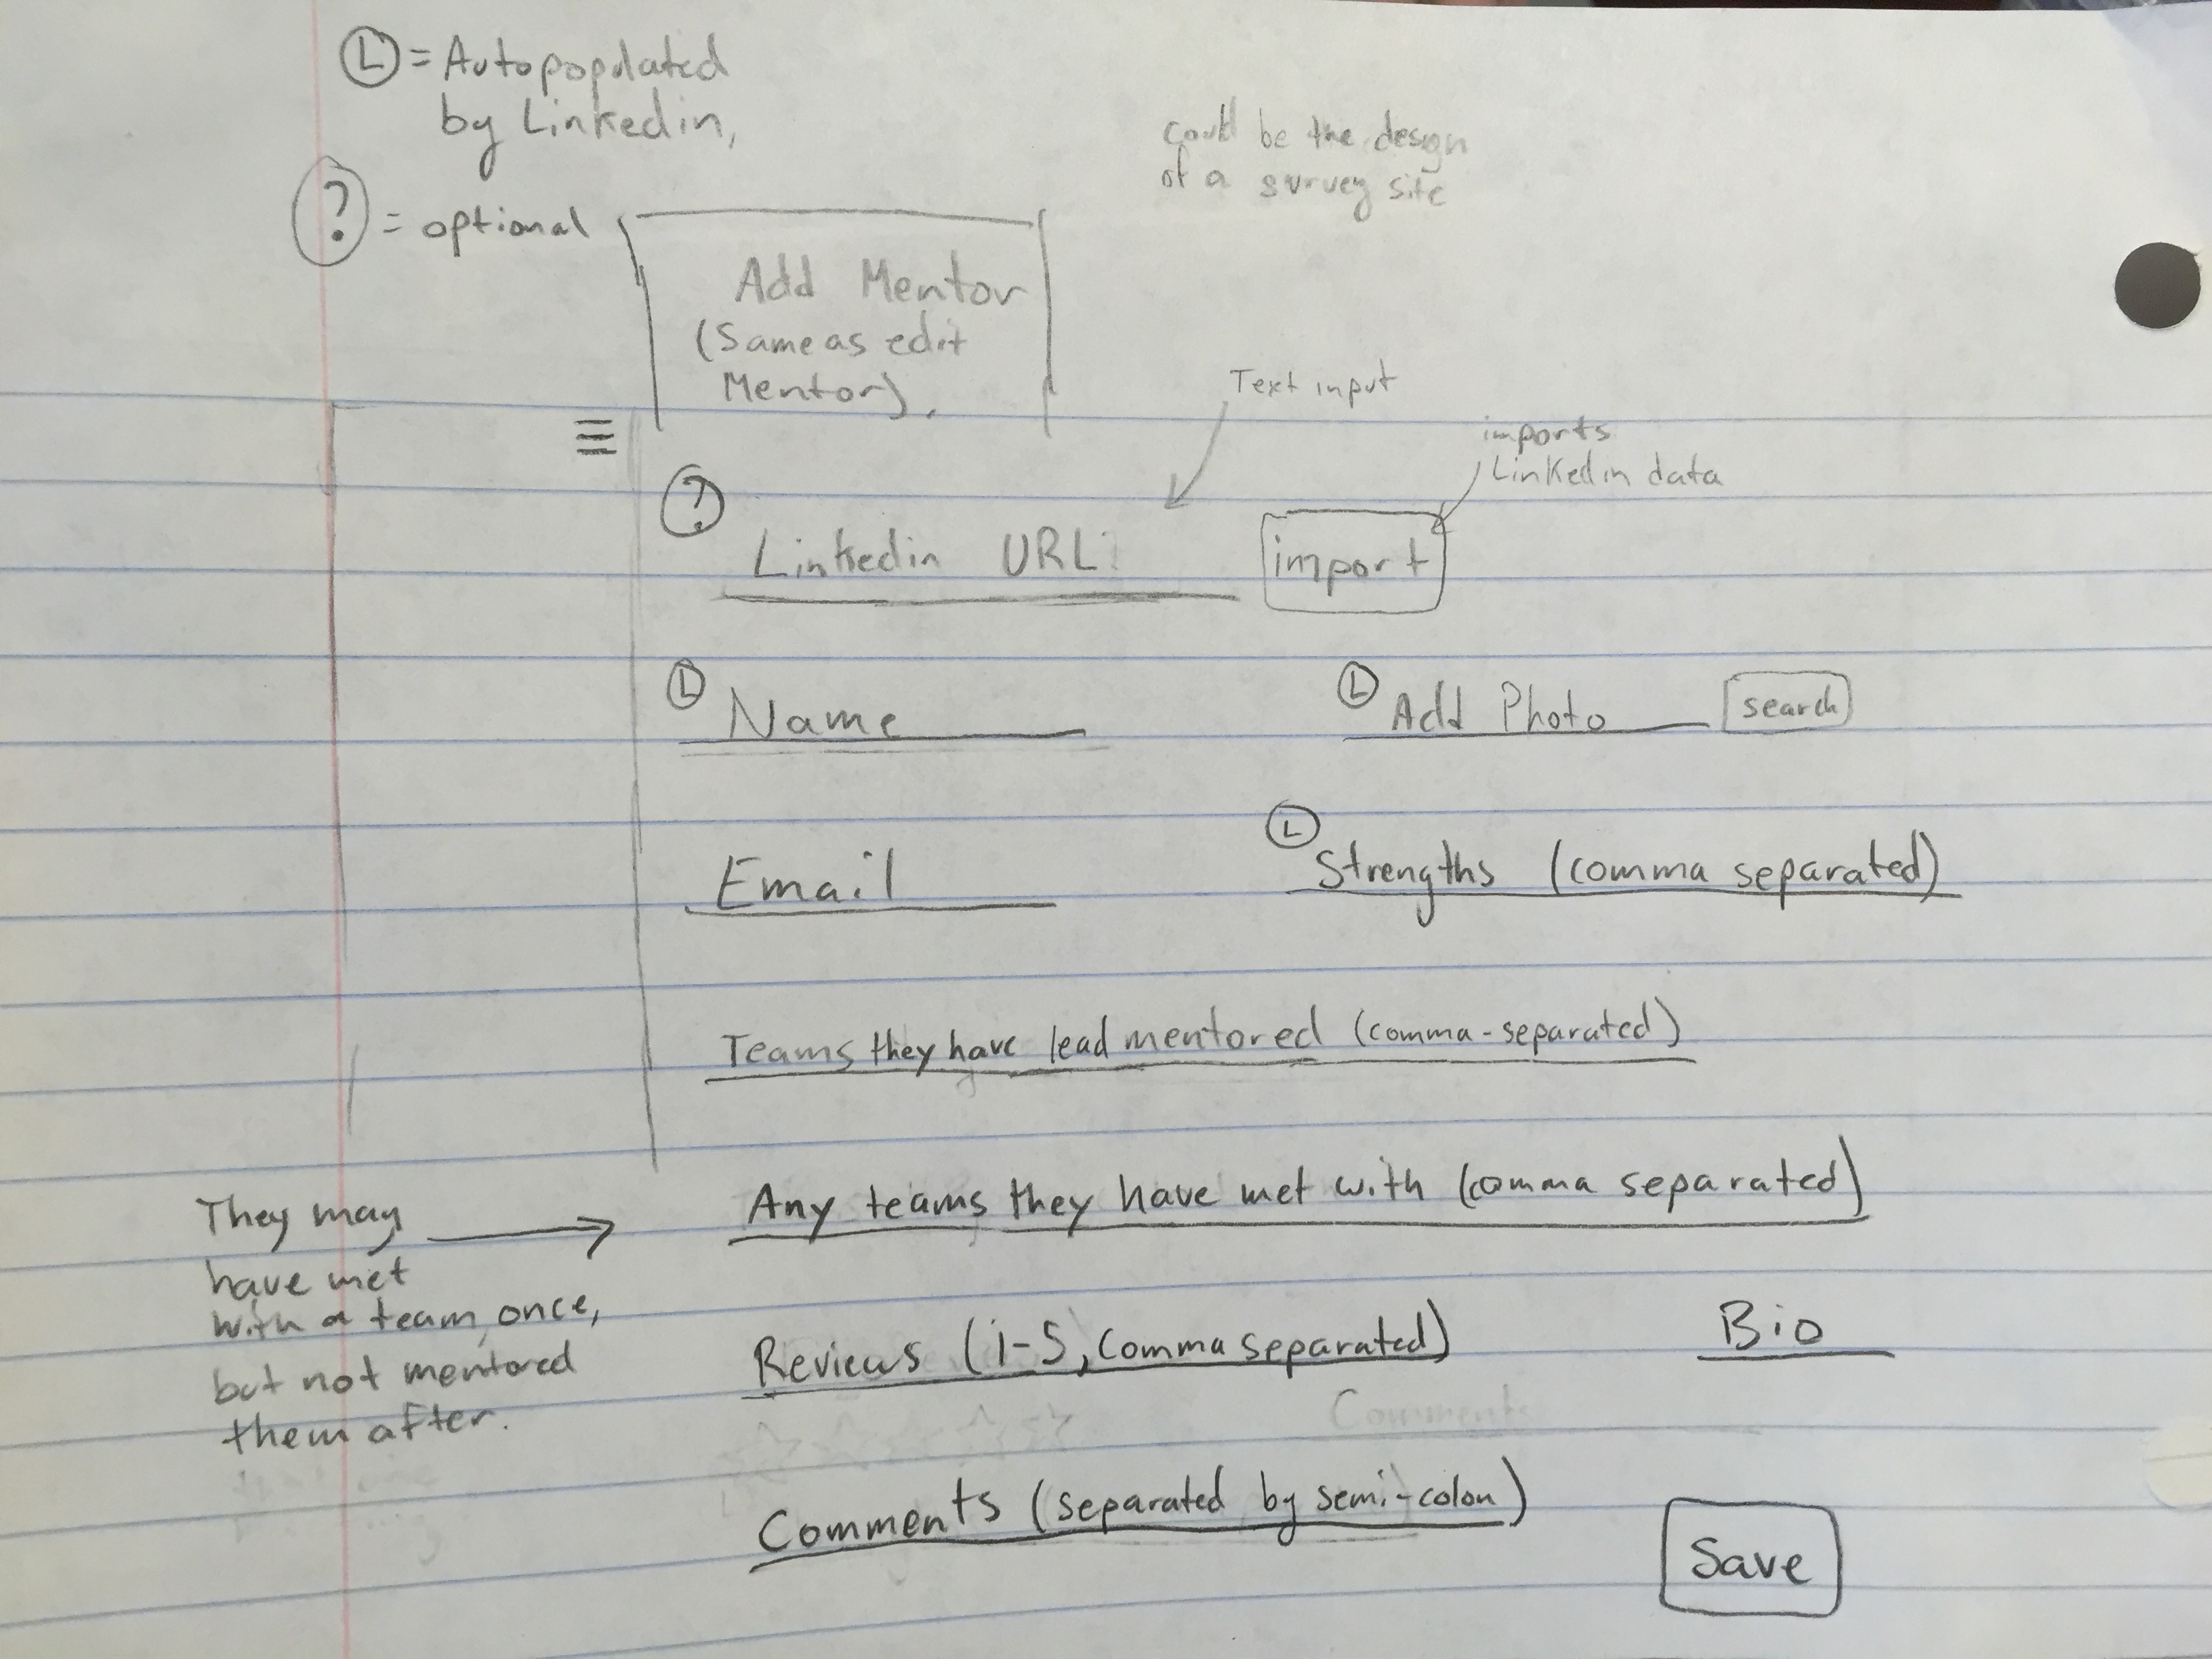 Ⓛ = Autopopulated
by Linkedin,
? = optional
could be the design
of a survey site
Add Mentor
(Same as edit
Mentor).
Text input
imports
Linkedin data
?
Linkedin URL:
import
Ⓛ Name
Ⓛ Add Photo
search
Email
Ⓛ
Strengths (comma separated)
Teams they have lead mentored (comma-separated)
Any teams they have met with (comma separated)
They may
have met
with a team once,
but not mentored
them after.
Reviews (1-5, comma separated)
Bio
Comments
Comments (separated by semi-colon)
Save